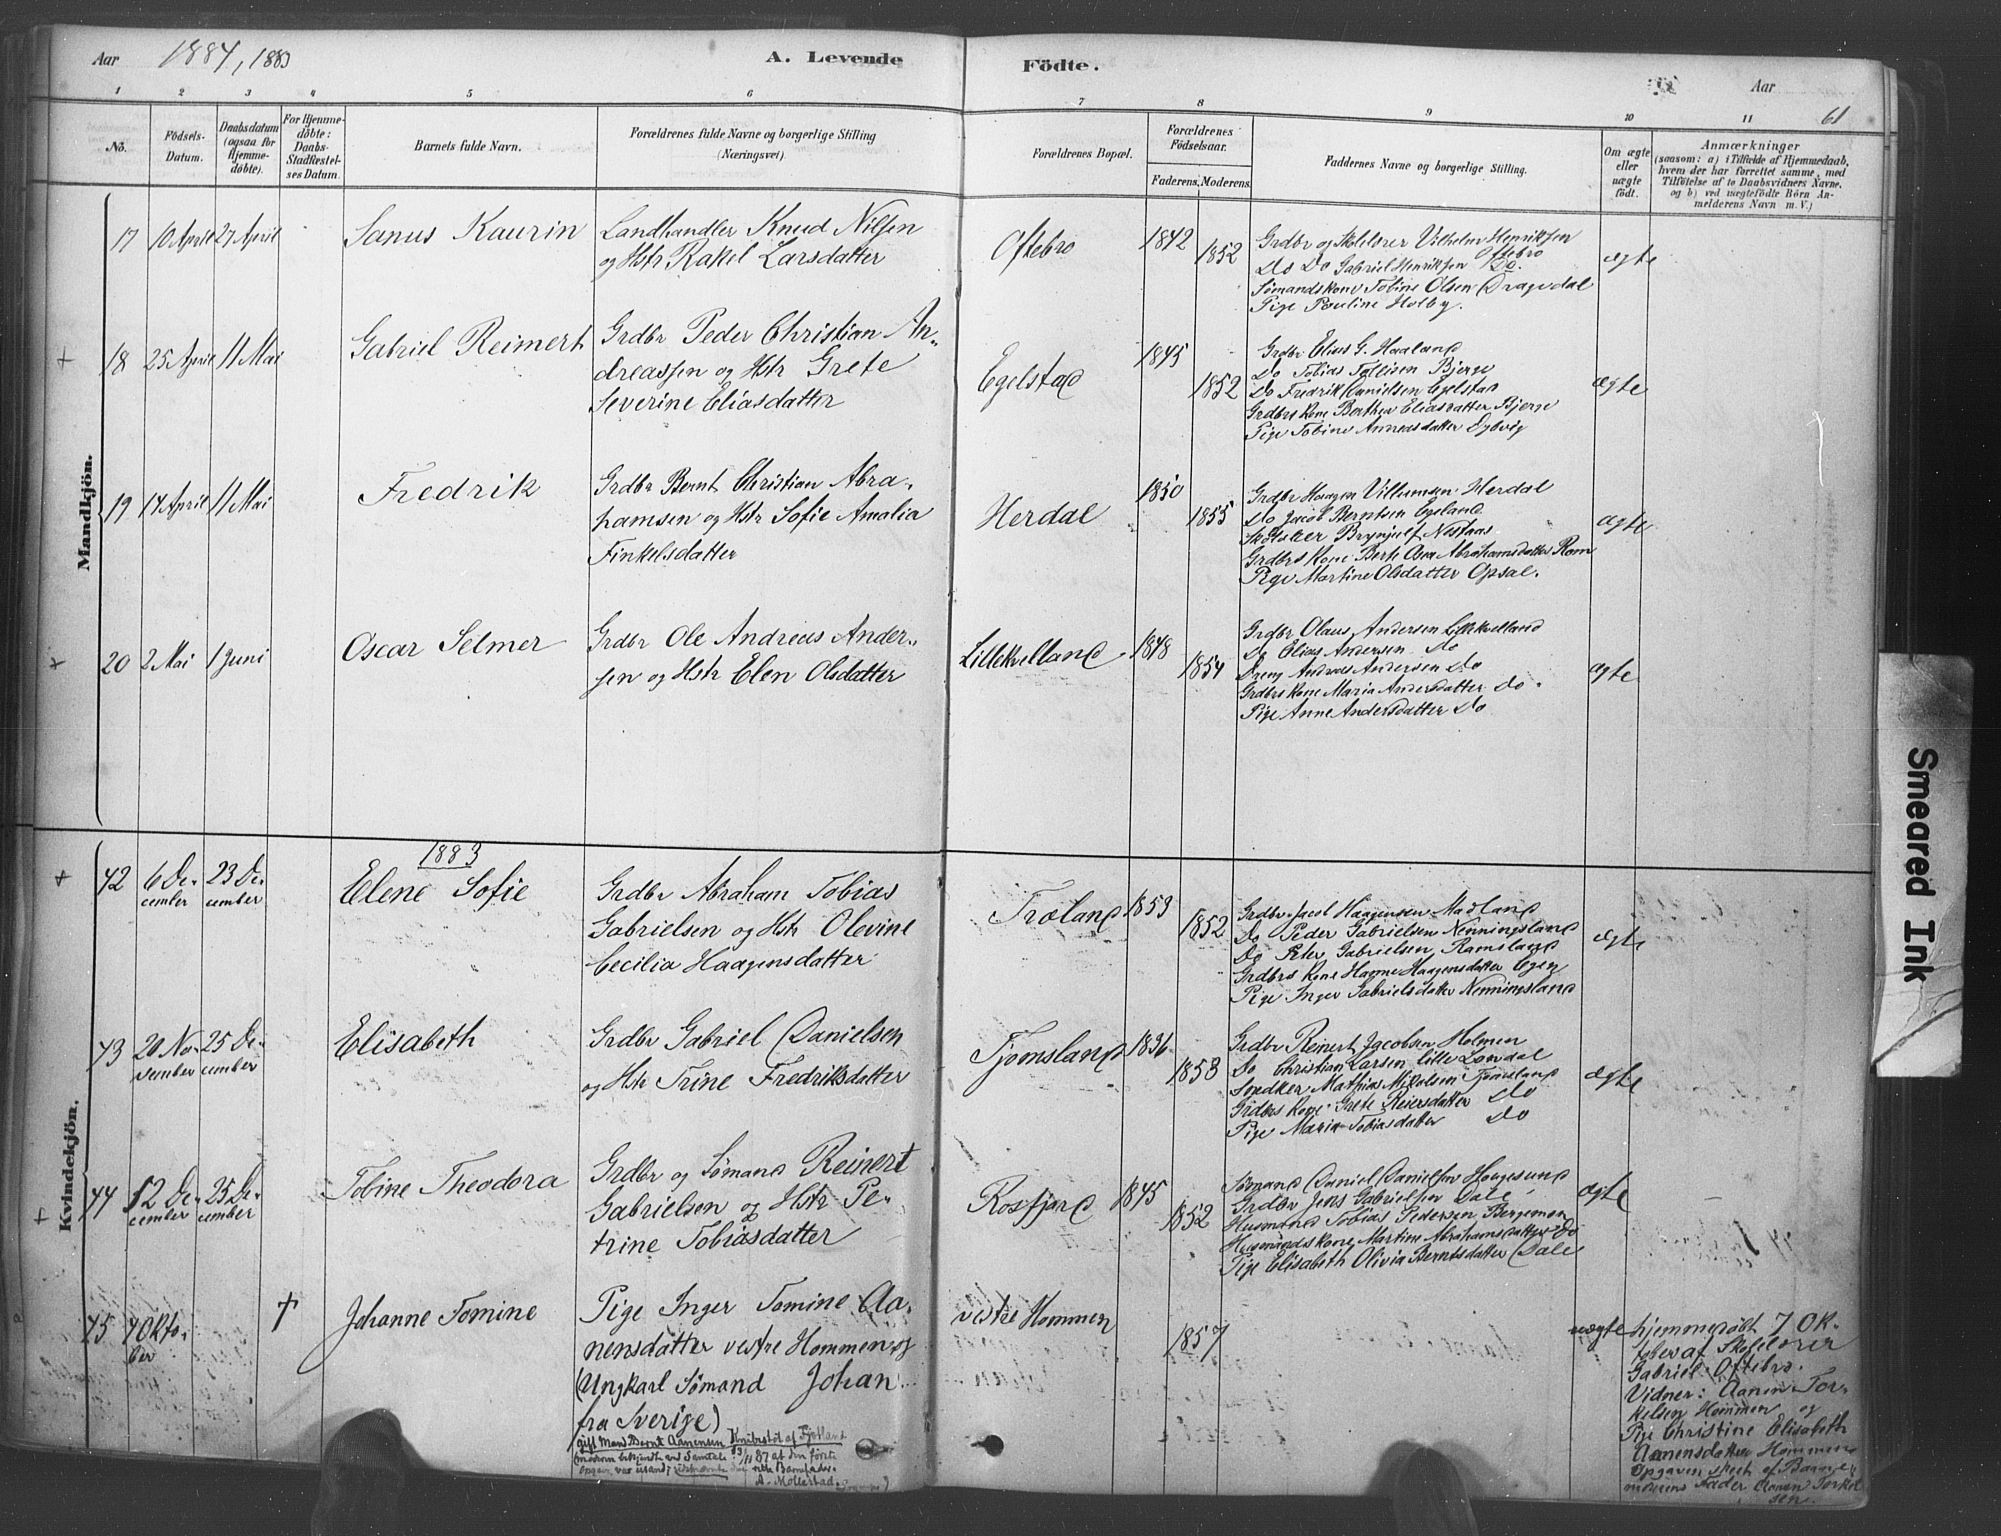 Aar 1884, 1883 A. Levende Födte. Aar
61
1 2 3 4 5 6 7 8 9 10 11
No.
Födsels-
Datum.
Daabsdatum
(ogsaa for
Hjemme-
döbte).
For Hjemme-
döbte:
Daabs-
Stadfæstel-
ses Datum.
Barnets fulde Navn.
Forældrenes fulde Navne og borgerlige Stilling
(Næringsvei).
Forældrenes Bopæl.
Forældrenes
Födselsaar.
Faderens. Moderens.
Faddernes Navne og borgerlige Stilling.
Om ægte
eller
uægte
födt.
Anmærkninger
(saasom: a) i Tilfælde af Hjemmedaab,
hvem der har forrettet samme, med
Tilföielse af to Daabsvidners Navne,
og b) ved uægtefödte Börn An-
melderens Navn m. V.)
Mandkjön.
17 10 April 27 April
Sanus Kaurin
Landhandler Knud Nilsen
og Hstr Rakel Larsdatter
Oftebro
1842
1852
Grdbr og Skolelærer Vilhelm Henriksen
Oftebro
Do Do Gabriel Henriksen Do.
Sømandskone Tobine Olsen Dragedal
Pige Pauline Holby.
ægte
+
18 25 April 11 Mai
Gabriel Reimert
Grdbr Peder Christian An-
dreassen og Hstr Grete
Severine Eliasdatter
Egelstad
1845
1852
Grdbr Elias G. Haaland
Do Tobias Tollisen Bjerge
Do Fredrik Danielsen Egelstad
Grdbrs Kone Berthea Eliasdatter Bjerge
Pige Tobine Andreasdatter
ægte
19 14 April 11 Mai
Fredrik
Grdbr Bernt Christian Abra-
hamsen og Hstr Sofie Amalia
Finkelsdatter
Herdal
1850
1855
Grdbr Haagen Villumsen Herdal
Do Jacob Berntsen Egeland
Brynjulf
Grdbrs Kone Berte Abrahamsdatter Rom
Pige Martine Olsdatter Opsal.
ægte
+
20 2 Mai 1 Juni
Oscar Selmer
Grdbr Ole Andreas Ander-
sen og Hstr Elen Olsdatter
Lillekvelland
1848
1854
Grdbr Olaus Andersen Lillekvelland
Do Elias Andersen Do
Dreng Andreas Andersen Do
Grdbrs Kone Maria Andersdatter Do.
Pige Anne Andersdatter Do
ægte
Kvindekjön.
1883
+
72 6 De-
cember
23 De-
cember
Elene Sofie
Grdbr Abraham Tobias
Gabrielsen og Hstr Olevine
Cecilia Haagensdatter
Træland
1853
1852
Grdbr Jacob Haagensen
Do Peder Gabrielsen Nenningsland
Do Peter Gabrielsen Ramsland
Grdbrs Kone Hanne Haagensdatter Egen
Pige Inger Gabrielsdatter Nenningsland
ægte
73 20 No-
vember
25 De-
cember
Elisabeth
Grdbr Gabriel Danielsen
og Hstr Trine Fredriksdatter
Tjomsland
1836
1853
Grdbr Reinert Jacobsen Holmen
Do Christian Larsen Lille Londal
Snedker Mathias Mikalsen Tjomsland
Grdbrs Kone Grete Reiersdatter Do
Pige Maria Tobiasdatter Do
ægte
+
74 12 De-
cember
25 De-
cember
Tobine Theodora
Grdbr og Sømand Reinert
Gabrielsen og Hstr Pe-
trine Tobiasdatter
Rosfjord
1845
1852
Sømand Daniel Danielsen Haugesund
Grdbr Jens Gabrielsen Dale
Husmand Tobias Pedersen Bergemoen
Husmandskone Martine Abrahamsdatter Do
Pige Elisabeth Olivia Berntsdatter Dale
ægte
75 7 Okto-
ber
†
Johanne Tomine
Pige Inger Tomine Aa-
nensdatter vestre Hommen og
(Ungkarl Sømand Johan
fra Sverige)
gift Mand Bernt Aanensen Knibestøl af Fjotland
modren bekjendte ved Samtale 13/11 87 at den første
Opgave var usand; rette Barnefader.
A. Møllerstad.
vestre Hommen
1857
uægte
hjemmedøbt 7 Ok-
tober af Skolelærer
Gabriel Oftebro.
Vidner: Aanen Tor-
kelsen Hommen og
Pige Christine Elisabeth
Aanensdatter Hommen
Opgaven skeet af Barne-
moderens Fader Aanen Torkel-
sen.
Smeared Ink